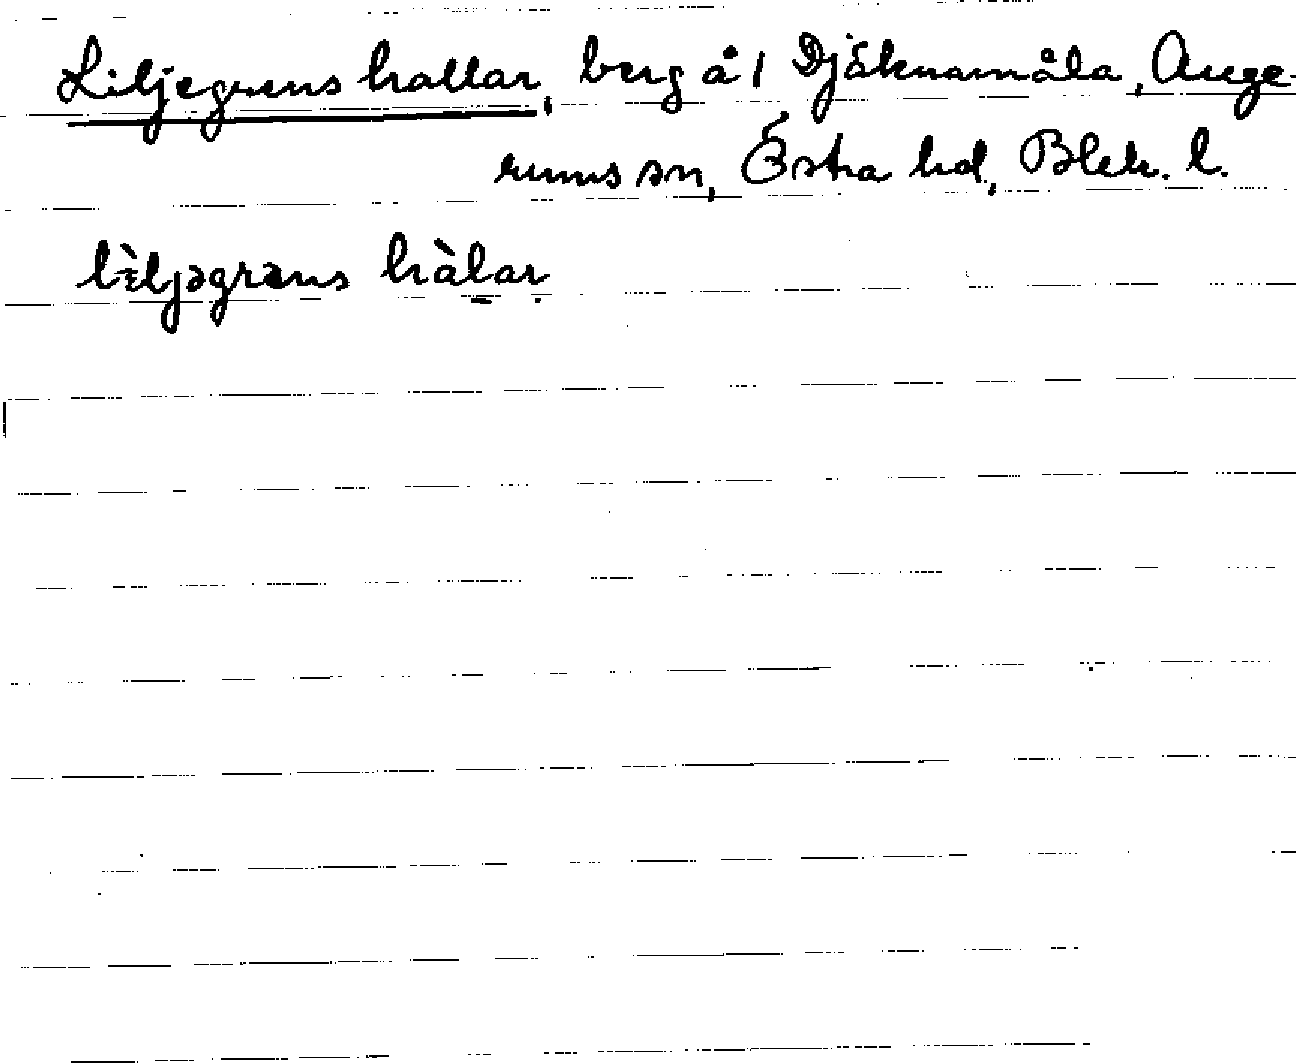 Liljegrens hallar, berg å 1 Djäknamåla, Auge-
rums sn, Östra hd, Blek. l.
lìljəgrəns hàlar